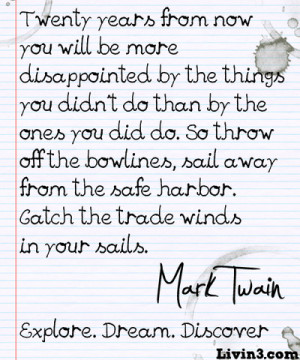 Twenty years from now
you will be more
disappointed by the things
you didn't do than by the
ones you did do. So throw
off the bowlines, sail away
from the safe harbor.
Catch the trade winds
in your sails.
Mark Twain
Explore. Dream. Discover
Livin3.com